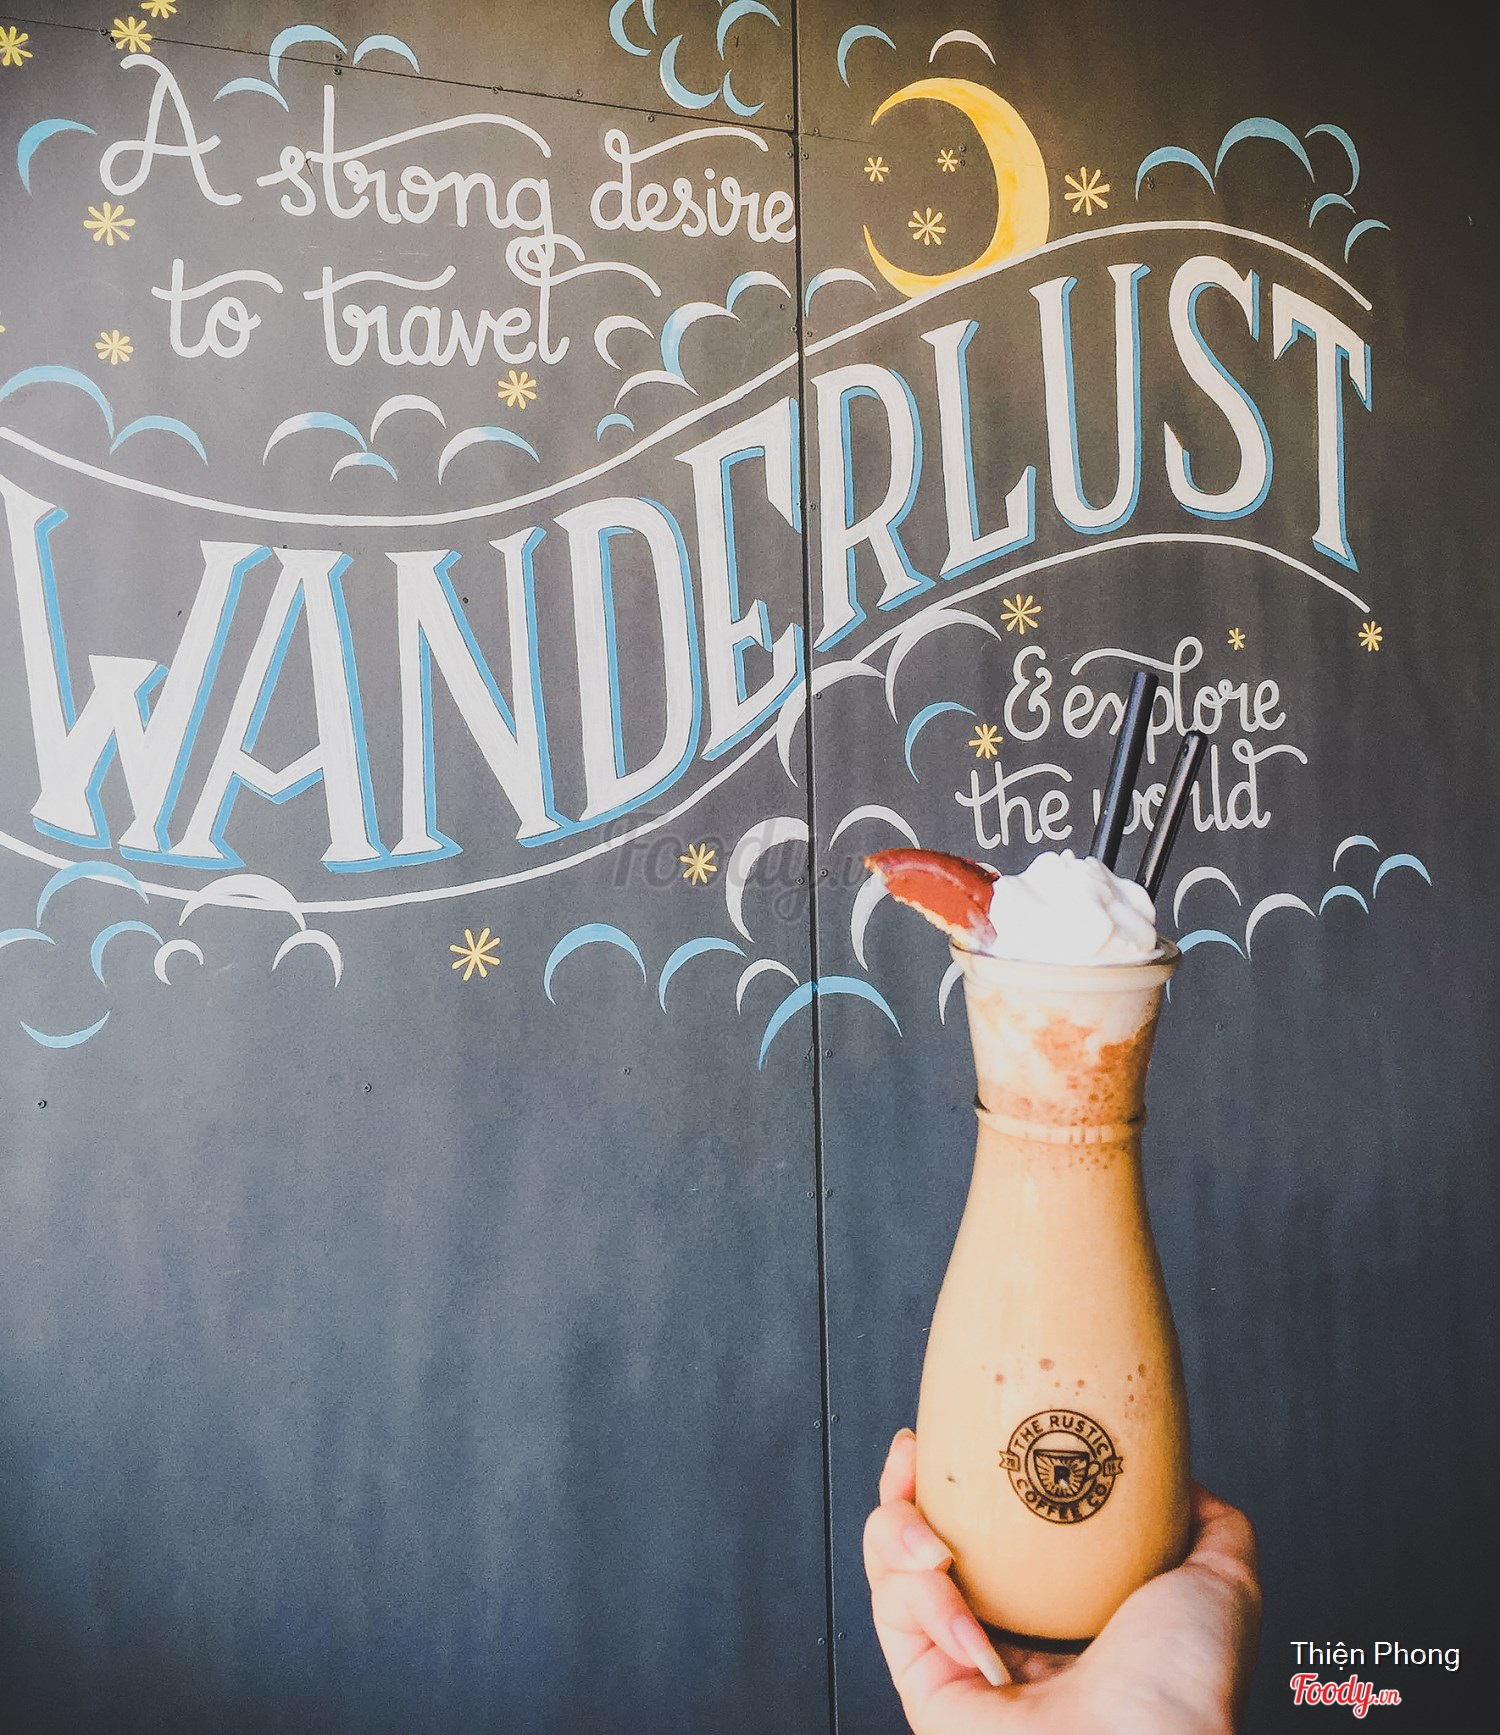 A strong desire
to travel
WANDERLUST
& explore
the world
Foody.vn
THE RUSTIC
20 16
COFFEE CO.
Thiện Phong
Foody.vn